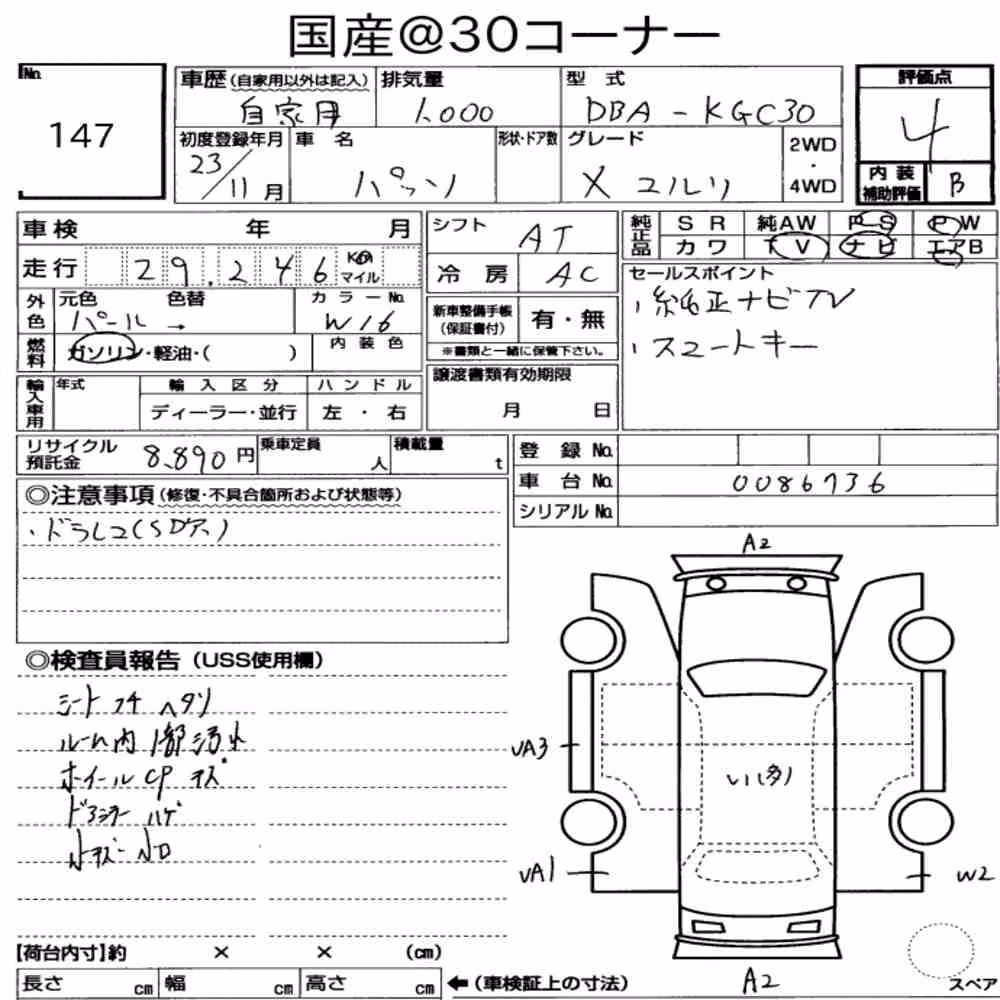 国産@30コーナー
No. 147
車歴(自家用以外は記入) 自家用
排気量 1,000
型 式 DBA - KGC30
評価点 4
初度登録年月 23/11月
車 名 パッソ
形状・ドア数
グレード X ユルリ
2WD・4WD
内装補助評価 B
車検 年 月
シフト AT
純正品 S R 純AW P-S P W
カワ T V ナビ エアB
走行 29,246 Km マイル
冷房 AC
セールスポイント
・純正ナビTV
・スマートキー
外色 元色 パール → 色替 カラーNo. W16
新車整備手帳(保証書付) 有・無
※書類と一緒に保管下さい。
燃料 ガソリン・軽油・( ) 内装色
譲渡書類有効期限
月 日
輸入車用 年式 輸入区分 ハンドル
ディーラー・並行 左・右
リサイクル預託金 8,890円 乗車定員 人 積載量 t
登録No.
車台No. 0086736
シリアルNo.
◎注意事項(修復・不具合箇所および状態等)
・ドラレコ(SDナシ)
◎検査員報告(USS使用欄)
シート コゲ ヘタリ
ルーム内 1部汚れ
ホイールCP キズ
ドアミラー ハゲ
A2
UA3
いい(多)
UA1
W2
A2
【荷台内寸】約 × × (cm)
長さ cm 幅 cm 高さ cm ←(車検証上の寸法)
スペア